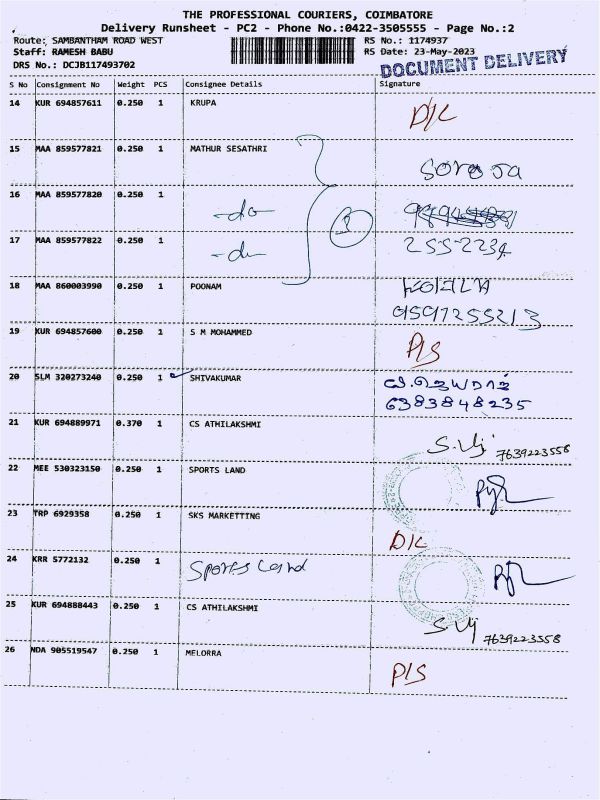 THE PROFESSIONAL COURIERS, COIMBATORE
Delivery Runsheet - PC2 - Phone No.:0422-3505555 - Page No.:2
Route: SAMBANTHAM ROAD WEST RS No.: 1174937
Staff: RAMESH BABU RS Date: 23-May-2023
DRS No.: DCJB117493702 DOCUMENT DELIVERY
S No Consignment No Weight PCS Consignee Details Signature
14 KUR 694857611 0.250 1 KRUPA D/L
15 MAA 859577821 0.250 1 MATHUR SESATHRI
16 MAA 859577820 0.250 1 -do- 3
17 MAA 859577822 0.250 1 -do- 255-2234
18 MAA 860003990 0.250 1 POONAM
9597255213
19 KUR 694857600 0.250 1 S M MOHAMMED P/S
20 SLM 320273240 0.250 1 SHIVAKUMAR
6383848235
21 KUR 694889971 0.370 1 CS ATHILAKSHMI S.Vij 7639223558
22 MEE 530323150 0.250 1 SPORTS LAND
23 TRP 6929358 0.250 1 SKS MARKETTING D/L
24 KRR 5772132 0.250 1 Sports Land
25 KUR 694888443 0.250 1 CS ATHILAKSHMI S.Vij 7639223558
26 NDA 905519547 0.250 1 MELORRA P/S